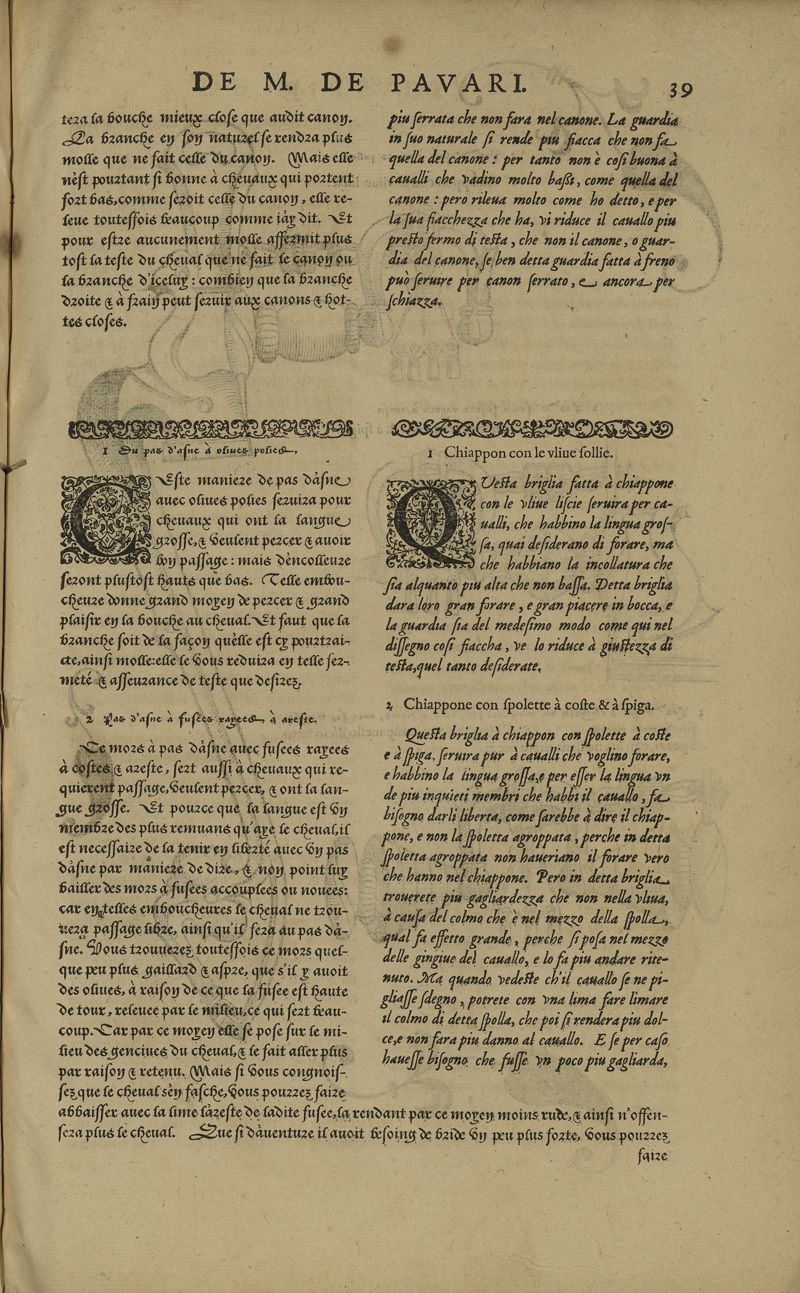 DE M. DE PAVARI. 39
tera la bouche mieux close que audit canon.
La branche en son naturel se rendra plus
molle que ne fait celle du canon. Mais elle
nèst pourtant si bonne à cheuaux qui portent
fort bas, comme seroit celle du canon, elle re-
leue toutesfois beaucoup comme iày dit. Et
pour estre aucunement molle affermit plus
tost la teste du cheual que ne fait le canon ou
la branche d'iceluy: combien que la branche
droite & à frain peut seruir aux canons & hot-
tes closes.
1 Du pas d'asne à oliues polies.
CEste maniere de pas dàsne
auec oliues polies seruira pour
cheuaux qui ont la langue
grosse, & veulent percer & auoir
bon passage: mais dèncolleure
seront plustost hauts que bas. Telle embou-
cheure donne grand moyen de percer & grand
plaisir en la bouche au cheual. Et faut que la
branche soit de la façon quèlle est cy pourtrai-
cte, ainsi molle: elle le vous reduira en telle fer-
meté & asseurance de teste que desirez.
2 Pas d'asne à fusees rayees, à areste.
Ce mors à pas dàsne auec fusees rayees
à costes & areste, sert aussi à cheuaux qui re-
quierent passage, veulent percer, & ont la lan-
gue grosse. Et pource que la langue est vn
membre des plus remuans qu'aye le cheual, il
est necessaire de la tenir en liberté auec vn pas
dàsne par maniere de dire, & non point luy
bailler des mors à fusees accouplees ou nouees:
car en telles emboucheures le cheual ne trou-
uera passage libre, ainsi qu'il fera au pas dà-
sne. Vous trouuerez toutesfois ce mors quel-
que peu plus gaillard & aspre, que s'il y auoit
des oliues, à raison de ce que la fusee est haute
de tour, releuee par le milieu, ce qui sert beau-
coup. Car par ce moyen elle se pose sur le mi-
lieu des genciues du cheual, & le fait aller plus
par raison & retenu. Mais si vous congnois-
sez que le cheual sèn fasche, vous pourrez faire
abbaisser auec la lime làreste de ladite fusee, la rendant par ce moyen moins rude, & ainsi n'offen-
sera plus le cheual. Que si dàuenture il auoit besoing de bride vn peu plus forte, vous pourrez
faire
piu serrata che non fara nel canone. La guardia
in suo naturale si rende piu fiacca che non fa
quella del canone: per tanto non è cosi buona à
caualli che vadino molto bassi, come quella del
canone: pero rileua molto come ho detto, e per
la sua fiacchezza che ha, vi riduce il cauallo piu
presto fermo di testa, che non il canone, o guar-
dia del canone, se ben detta guardia fatta à freno
può seruire per canon serrato, & ancora per
schiazza.
1 Chiappon con le vliue sollie.
QVesta briglia fatta à chiappone
con le vliue liscie seruira per ca-
ualli, che habbino la lingua gros-
sa, quai desiderano di forare, ma
che habbiano la incollatura che
sia alquanto piu alta che non bassa. Detta briglia
dara loro gran forare, e gran piacere in bocca, e
la guardia sia del medesimo modo come qui nel
dissegno cosi fiaccha, ve lo riduce à giustezza di
testa, quel tanto desiderate.
2 Chiappone con spolette à coste & à spiga.
Questa briglia à chiappon con spolette à coste
e à spiga, seruira pur à caualli che voglino forare,
e habbino la lingua grossa, e per esser la lingua vn
de piu inquieti membri che habbi il cauallo, fa
bisogno darli liberta, come sarebbe à dire il chiap-
pone, e non la spoletta agroppata, perche in detta
spoletta agroppata non haueriano il forare vero
che hanno nel chiappone. Pero in detta briglia
trouerete piu gagliardezza che non nella vliua,
à causa del colmo che è nel mezzo della spolla,
qual fa effetto grande, perche si posa nel mezzo
delle gingiue del cauallo, e lo fa piu andare rite-
nuto. Ma quando vedeste ch'il cauallo se ne pi-
gliasse sdegno, potrete con vna lima fare limare
il colmo di detta spolla, che poi si rendera piu dol-
ce, e non fara piu danno al cauallo. E se per caso
hauesse bisogno che fusse vn poco piu gagliarda,